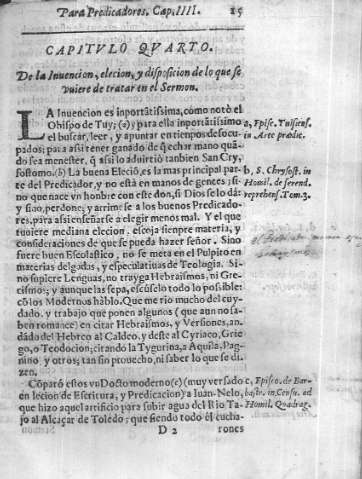 Para Predicadores. Cap. IIII. 15
CAPITVLO QVARTO.
De la Inuencion, elecion, y disposicion de lo que se
vuiere de tratar en el Sermon.
LA Inuencion es inportãtissima, como notò el
Obispo de Tuy; (a) y para ella inportãtissimo
el buscar, leer, y apuntar en tiempos desocu-
pados; para assi tener ganado de q̃ echar mano quã-
do sea menester, q̃ assi lo aduirtiò tanbien San Cry-
sostomo. (b) La buena Eleciõ, es la mas principal par-
te del Predicador, y no està en manos de gentes; si-
no que nace vn honbre con este don, si Dios se lo dà:
y sino, perdone; y arrime se a los buenos Predicado-
res, para assi enseñarse a elegir menos mal. Y el que
tuuiere mediana elecion, escoja sienpre materia, y
consideraciones de que se pueda hazer señor. Sino
fuere buen Escolastico, no se meta en el Pulpito en
materias delgadas, y especulatiuas de Teulogia. Si-
no supiere Lenguas, no trayga Hebraismos, ni Gre-
cismos; y aunque las sepa, escuselo todo lo possible:
cõ los Modernos hablo. Que me rio mucho del cuy-
dado, y trabajo que ponen algunos (que aun no sa-
ben romance) en citar Hebraismos, y Versiones, an-
dado del Hebreo al Caldeo, y deste al Cyriaco, Grie-
go, o Teodocion; citando la Tygurina, a Aquila, Pag-
nino, y otros; tan sin prouecho, ni saber lo que se di-
zen.
Cõparò estos vn Docto moderno (c) (muy versado
en lecion de Escritura, y Predicacion) a Juan-Nelo,
que hizo aquel artificio para subir agua del Rio Ta-
jo al Alcaçar de Toledo; que siendo todo el cucha-
D 2 rones
a, Episc. Tuisiens.
in Arte prædic.
b, S. Chrysost. in
Homil. de ferend.
reprehens. Tom. 3.
c, Episco. de Bar-
bastr. in Censu. ad
Homil. Quadrag.